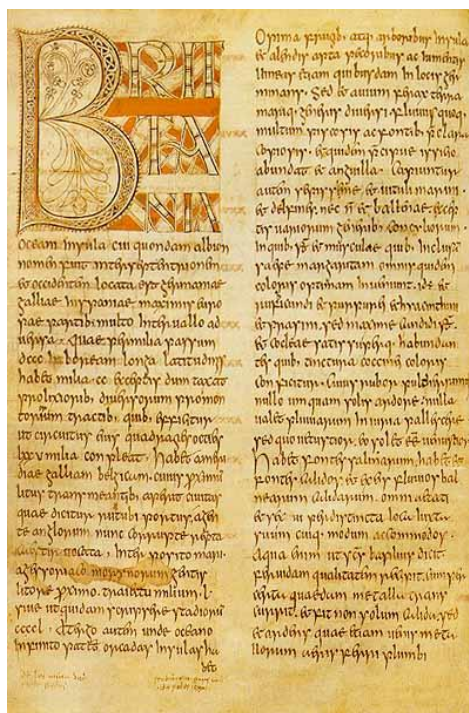 BRIT
TA
NIA
oceani insula cui quondam albion
nomen fuit inter septentrionem
et occidentem locata est germaniae
galliae hispaniae maximis euro
pae partib; multo interuallo ad
uersa. quae per milia passuum
dccc in boream longa latitudinis
habet milia .cc. exceptis dum taxat
prolixiorib; diuersorum promon
toriorum tractib; quib; efficitur
ut circuitus eius quadragies octies
lxxv milia conpleat. habet a meri
die galliam belgicam. cuius proximum
litus transmeantib; aperit ciuitas
quae dicitur rutubi portus. a gen
te anglorum nunc corrupte repta
caestir uocata, interposito mari.
a gessoriaco morinorum gentis
litore proximo. traiectu milium .l.
siue ut quidam scripsere stadiorum
ccccl. a tergo autem unde oceano
infinito patet orcadas insulas ha
bet
Opima frugib; atq; arborib; insula
et alendis apta pecorib; ac iumentis
uineas etiam quibusdam in locis ger
minans. Sed et auium ferax terra
mariq; generis diuersi. fluuiis quoq;
multum piscosis ac fontib; praeclara
copiosis. et quidem praecipue issicio
abundat et anguilla. Capiuntur
autem saepissime et uituli marini
et delfines nec n̄ et ballenae. excep
tis uariorum generib; concyliorum.
In quib; st et musculae quib; inclusam
saepe margaritam omnis quidem
coloris optimam inueniunt. id ē et
rubicundi et purpurei et hyacinthini
et prasini. sed maxime candidi.
et cocleae satis superq; habundan
tes quib; tinctura coccinei coloris
conficitur. Cuius rubor pulcherrimus
nullo umquam solis ardore. nulla
ualet pluuiarum iniuria pallescere
sed quo uetustior eo solet eē uenustior
Habet fontes salinarum. habet et
fontes calidos. et ex eis fluuios bal
nearum calidarum. omni aetati
et sexui per distincta loca iuxta
suum cuiq; modum accommodos.
Aqua enim ut scs basilius dicit
feruidam qualitatem recipit. cum per
certa quaedam metalla trans
currit. et fit non solum calida. sed
et ardens. quae etiam uenis metal
lorum aeris ferri plumbi